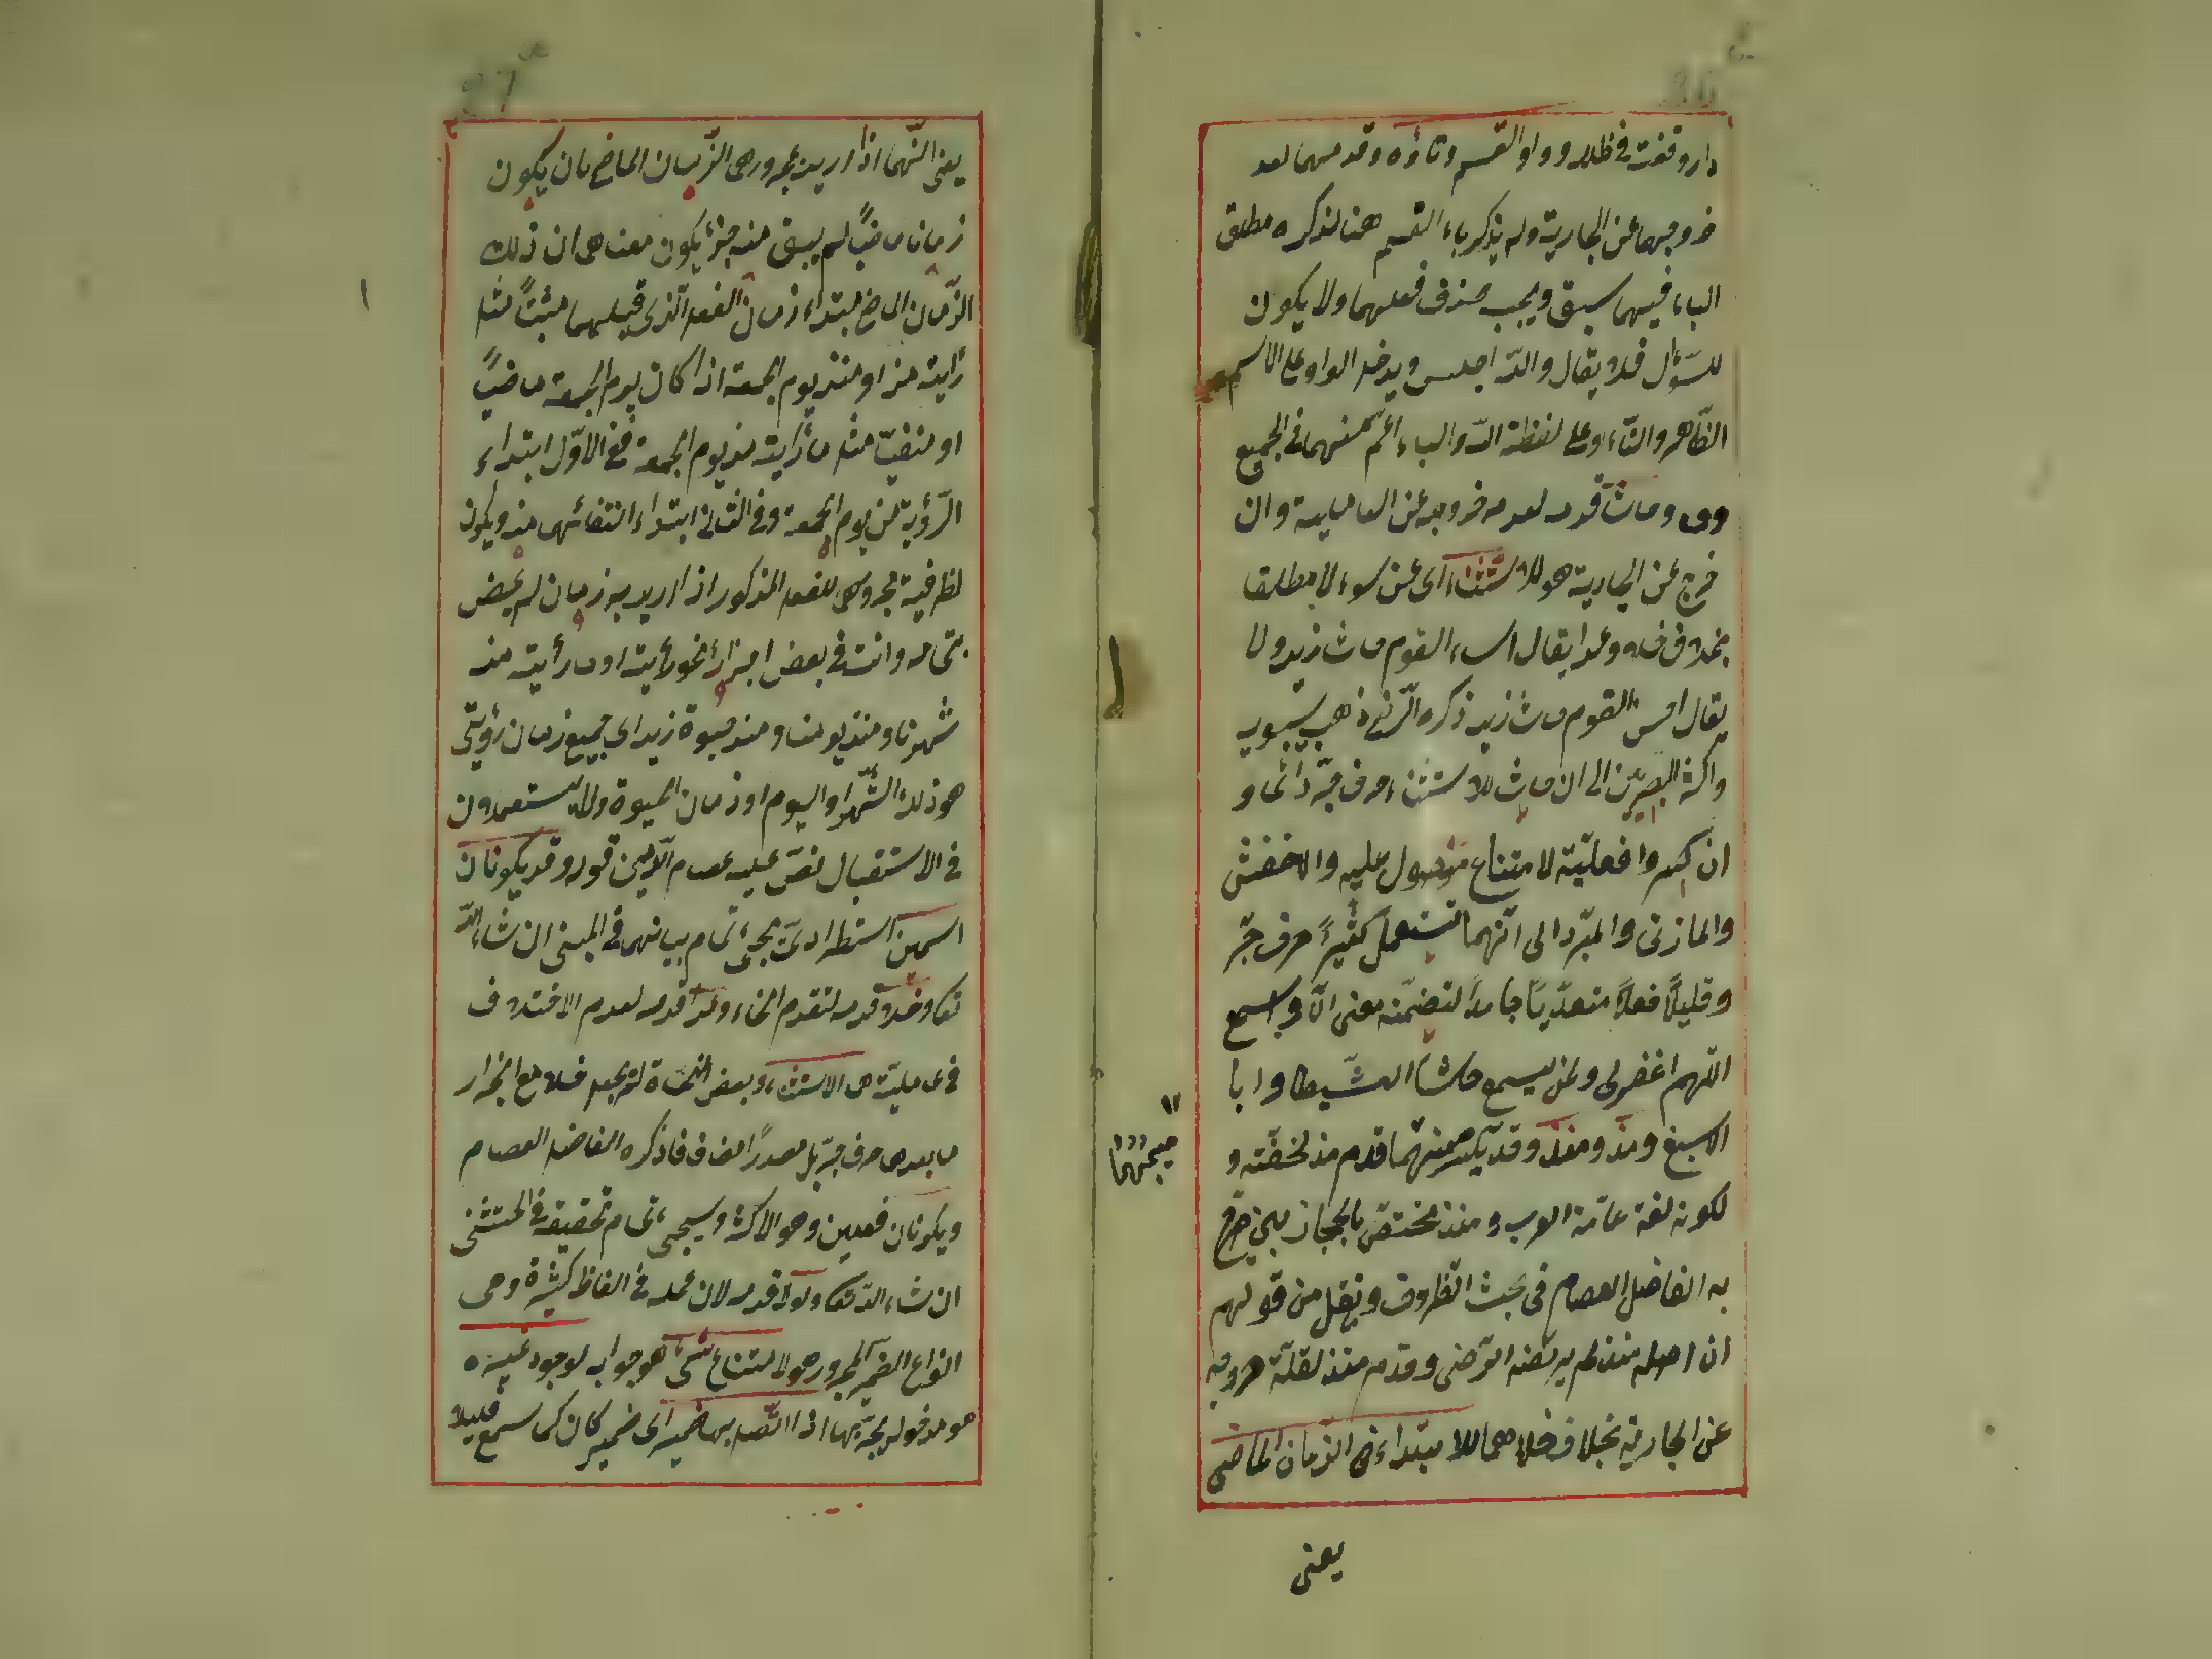 دار وقفت في ظله وواو القسم وتاؤه وقدمهما لعد
خروجهما عن الجارية ولم يذكر باء القسم هنا لذكره مطلق
الباء فيما سبق ويجب حذف فعلهما ولا يكون
للسؤال فلا يقال والله اجلس ويدخل الواو على الاسم
الظاهر والتاء على لفظة الله والباء اعم منهما في الجميع
وحاشا قدمه لعدم خروجه عن العاملية وان
خرج عن الجارية هو للاستثناء اي عن سوء لا مطلقا
بخلاف خلا وعدا يقال اساء القوم حاشا زيد ولا
يقال احسن القوم حاشا زيد ذكره الرضي ذهب سيبويه
واكثر البصريين الى ان حاشا للاستثناء حرف جر دائما و
ان كبروا فعليته لامتناع دخول عليه والاخفش
والمازني والمبرد الى انهما تستعمل كثيرًا حرف جر
وقليلًا فعلًا متعديًا جامدًا لتضمنه معنى الا وسمع
اللهم اغفر لي ولمن يسمع حاشا الشيطا وابا
الاسبغ ومذ ومنذ وقد يكسر ميمهما قدم مذ لخفته و
لكونه لغة عامة العرب ومنذ مختص بالحجازيين صرح
به الفاضل العصام في بحث الظروف ونقل من قولهم
ان اصله منذ لم يرتضه الرضي وقدمه منذ لقلة خروجه
عن الجارية بخلاف خلا هما للابتداء في الزمان الماضي
يعني
ميمهما
يعني انهما اذا اريد بمجرورهما الزمان الماضي بان يكون
زمانا ماضيًا لم يبق منه جزء يكون معناهما ان ذلك
الزمان الماضي مبتداء زمان الفعل الذي قبلهما مثبتًا مثل
رأيته مذ او منذ يوم الجمعة اذا كان يوم الجمعة ماضيًا
او منفيًا مثل ما رأيته مذ يوم الجمعة ففي الاول ابتداء
الرؤية من يوم الجمعة وفي الثاني ابتداء انتفائها منه ويكون
لظرفية مجرورهما للفعل المذكور اذا اريد به زمان لم يمض
بتمامه وانت في بعض اجزائه نحو رأيته او ما رأيته مذ
شهرنا ومنذ يومنا ومنذ حيوة زيد اي جميع زمان رؤيتي
هو ذلك الشهر او اليوم او زمان الحيوة ولا يستعملان
في الاستقبال نص عليه عصام الدين قوله وقد يكونان
اسمين استطرادي يجيء تمام بيانهما في المبني ان شاء الله
تعا وخلا قدمه لتقدم الخاء وعدا قدمه لعدم الاختلاف
في عامليته هما للاستثناء وبعض النحاة لم يجعل خلا مع انجرار
ما بعدها حرف جر بل مصدرًا مضافا ذكره الفاضل العصام
ويكونان فعلين وهو الاكثر وسيجيء تمام تحقيقه في المستثنى
ان شاء الله تعا ولولا قدمه لان عمله في الفاظ كثيرة وهي
انواع الضمير المجرور هو لامتناع شيء هو جوابه لوجود غيره
هو مدخوله يجر بها اذا اتصل بها ضمير اي ضمير كان كما سمع قليلا